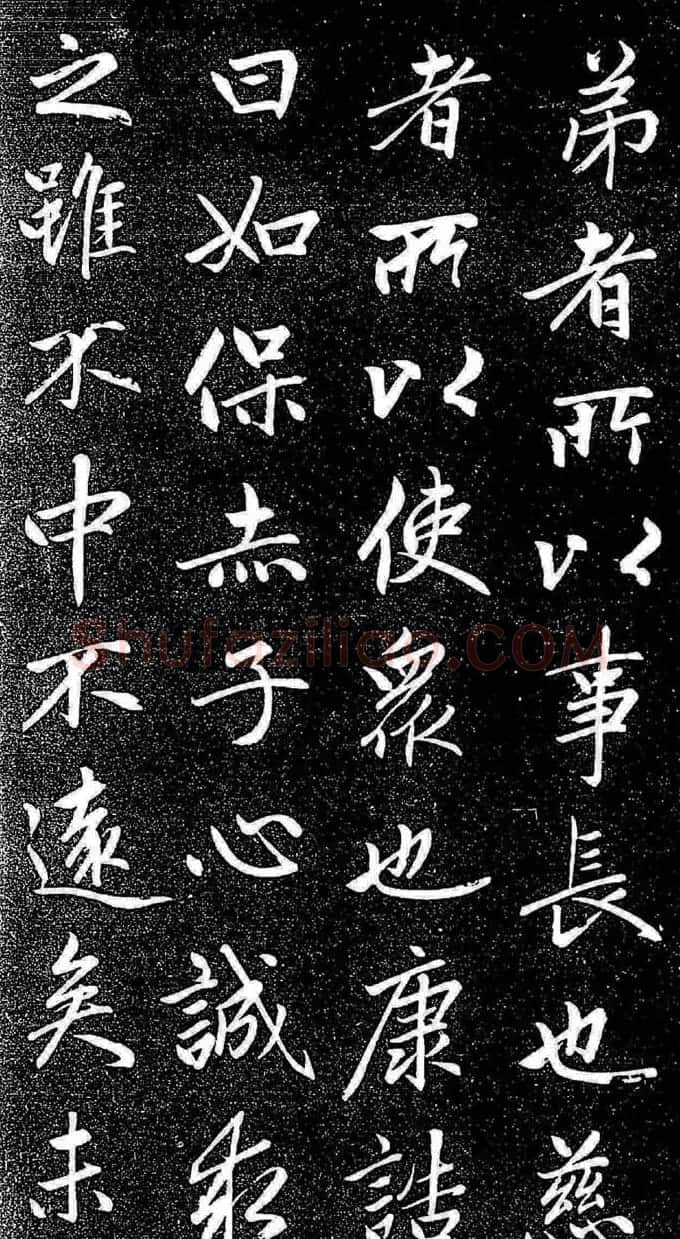 弟者所以事長也慈
者所以使眾也康誥
曰如保赤子心誠求
之雖不中不遠矣未
Shufaziliao.COM